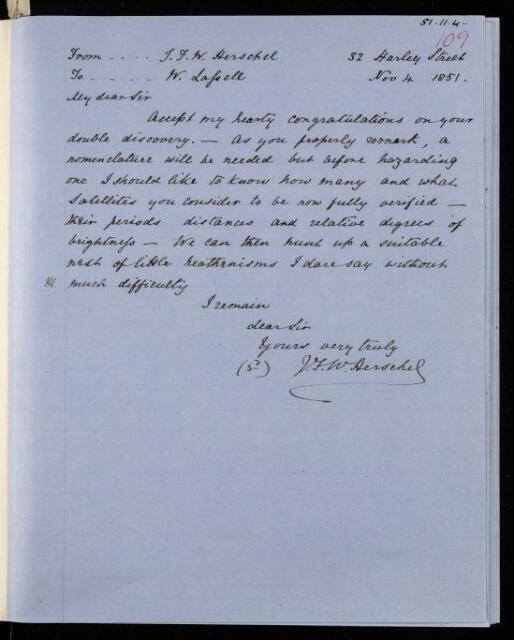 51.11.4-
109
From - - - - J.F.W. Herschel 32 Harley Street
To - - - - W. Lassell Nov 4 1851.
My dear Sir
Accept my hearty congratulations on your
double discovery. — As you properly remark, a
nomenclature will be needed but before hazarding
one I should like to know how many and what
satellites you consider to be now fully verified —
their periods distances and relative degrees of
brightness — We can then hunt up a suitable
nest of little heathenisms I dare say without
much difficulty
I remain
dear Sir
Yours very truly
(sd) J.F.W. Herschel